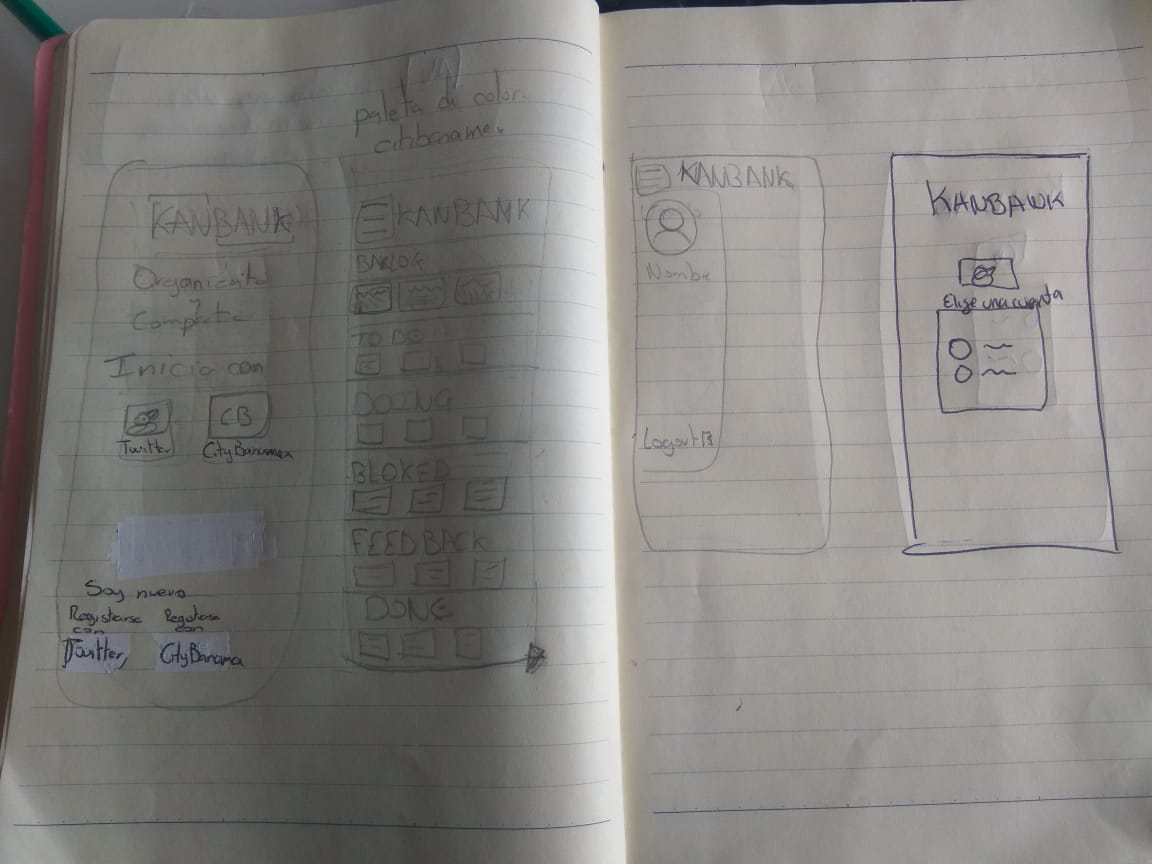 paleta di color.
citibaname.
KANBANK
Organizate
Comparte
Inicia con
CB
Twitter
CityBanamex
Soy nuevo
Registrarse con
Twitter,
Registrase con
CityBanama
KANBANK
BAKLOG
TO DO
DOING
BLOKED
FEEDBACK
DONE
KANBANK
Nombre
Logout
KANBANK
Elige una cuenta